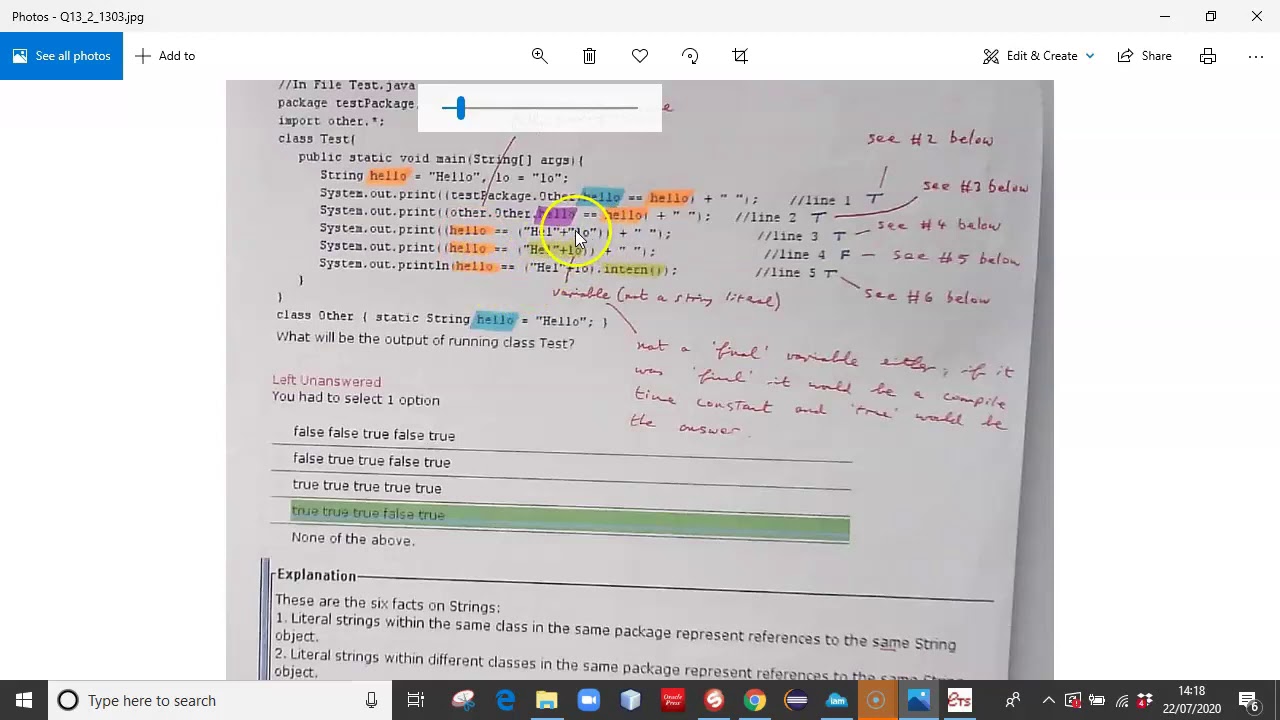 Photos - Q13_2_1303.jpg
See all photos
Add to
Edit & Create
Share
//In File Test.java
package testPackage
import other.*;
class Test{
public static void main(String[] args){
String hello = "Hello", lo = "lo";
System.out.print((testPackage.Other.hello == hello) + " "); //line 1 T see #2 below
System.out.print((other.Other.hello == hello) + " "); //line 2 T see #3 below
System.out.print((hello == ("Hel"+"lo")) + " "); //line 3 T see #4 below
System.out.print((hello == ("Hel"+lo)) + " "); //line 4 F see #5 below
System.out.println(hello == ("Hel"+lo).intern()); //line 5 T see #6 below
}
}
variable (not a string literal)
class Other { static String hello = "Hello"; }
What will be the output of running class Test?
not a 'final' variable either, if it
was 'final' it would be a compile
time constant and 'true' would be
the answer.
Left Unanswered
You had to select 1 option
false false true false true
false true true false true
true true true true true
true true true false true
None of the above.
Explanation
These are the six facts on Strings:
1. Literal strings within the same class in the same package represent references to the same String
object.
2. Literal strings within different classes in the same package represent references to the same String
object.
Type here to search
14:18
22/07/2020